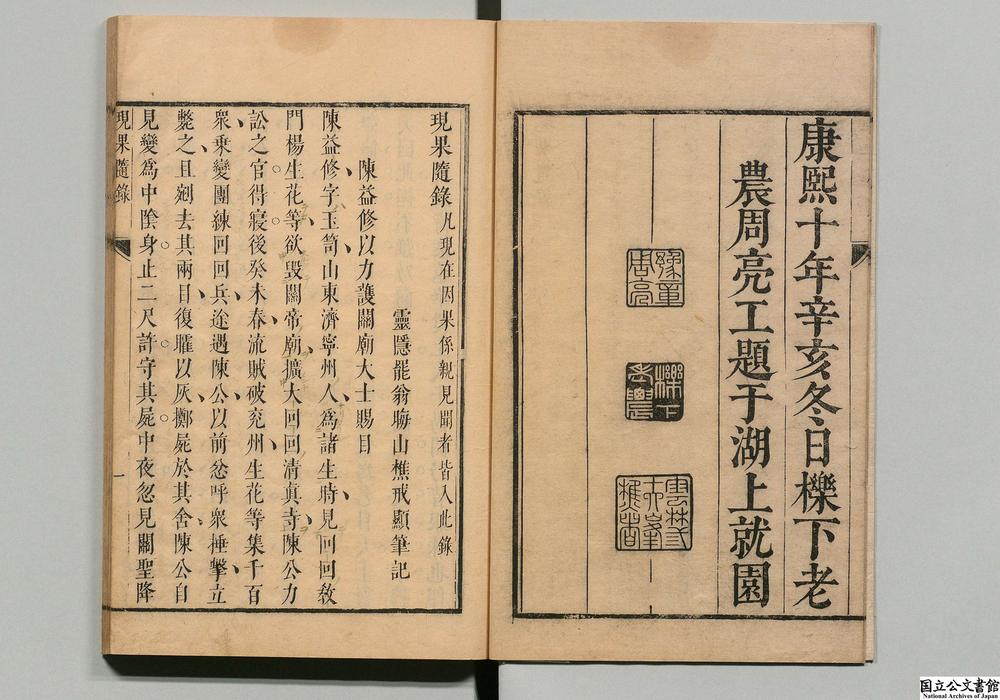 康熙十年辛亥冬日櫟下老
農周亮工題于湖上就園
豫章
周亮
櫟下
老農
現果隨錄 凡現在因果係親見聞者皆入此錄
靈隱龍翁晦山樵戒顯筆記
陳益修以力護關廟大士賜目
陳益修字玉笥山東濟寧州人為諸生時見回回教
門楊生花等欲毀關帝廟擴大回回清真寺陳公力
訟之官得寢後癸未春流賊破兖州生花等集千百
眾乘變團練回回兵途遇陳公以前忿呼眾捶擊立
斃之且剜去其兩目復𦥊以灰擲屍於其舍陳公自
見變為中陰身止二尺許守其屍中夜忽見關聖降
現果隨錄
一
国立公文書館
National Archives of Japan